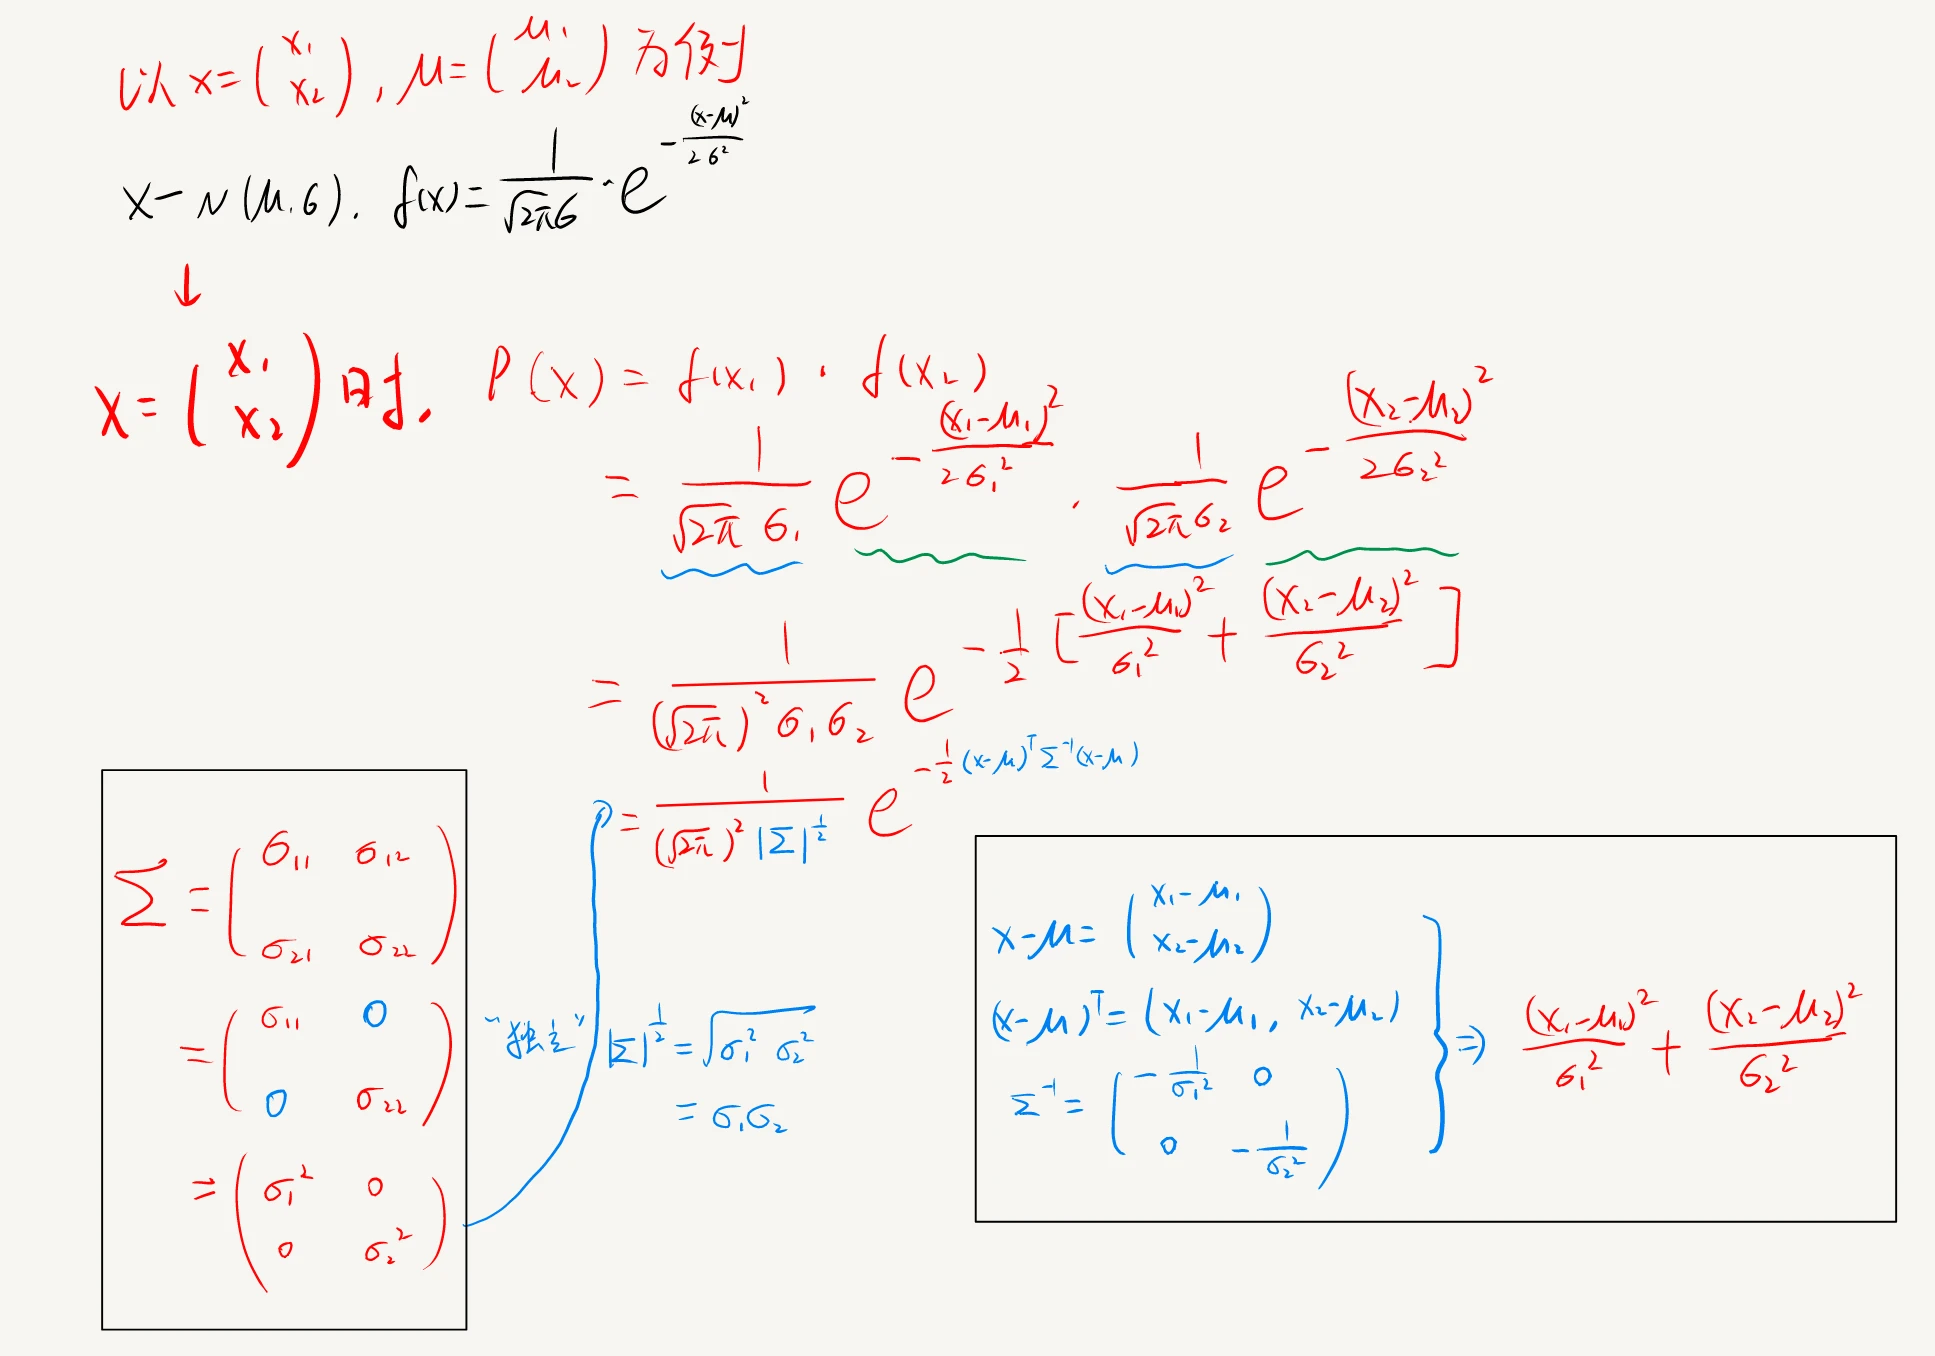 以 x = (x₁ x₂), μ = (μ₁ μ₂) 为例
x — N(μ, σ). f(x) = 1/(√2π σ) · e^(-(x-μ)²/(2σ²))
↓
x = (x₁ x₂) 时, P(x) = f(x₁) · f(x₂)
= 1/(√2π σ₁) e^(-(x₁-μ₁)²/(2σ₁²)) · 1/(√2π σ₂) e^(-(x₂-μ₂)²/(2σ₂²))
= 1/((√2π)² σ₁σ₂) e^(-1/2 [(x₁-μ₁)²/σ₁² + (x₂-μ₂)²/σ₂²])
= 1/((√2π)² |Σ|^(1/2)) e^(-1/2 (x-μ)ᵀ Σ⁻¹ (x-μ))
Σ = (σ₁₁ σ₁₂
σ₂₁ σ₂₂)
= (σ₁₁ 0
0 σ₂₂)
"独立"
= (σ₁² 0
0 σ₂²)
|Σ|^(1/2) = √(σ₁² σ₂²)
= σ₁σ₂
x-μ = (x₁-μ₁
x₂-μ₂)
(x-μ)ᵀ = (x₁-μ₁, x₂-μ₂)
Σ⁻¹ = (-1/σ₁² 0
0 -1/σ₂²)
⇒ (x₁-μ₁)²/σ₁² + (x₂-μ₂)²/σ₂²